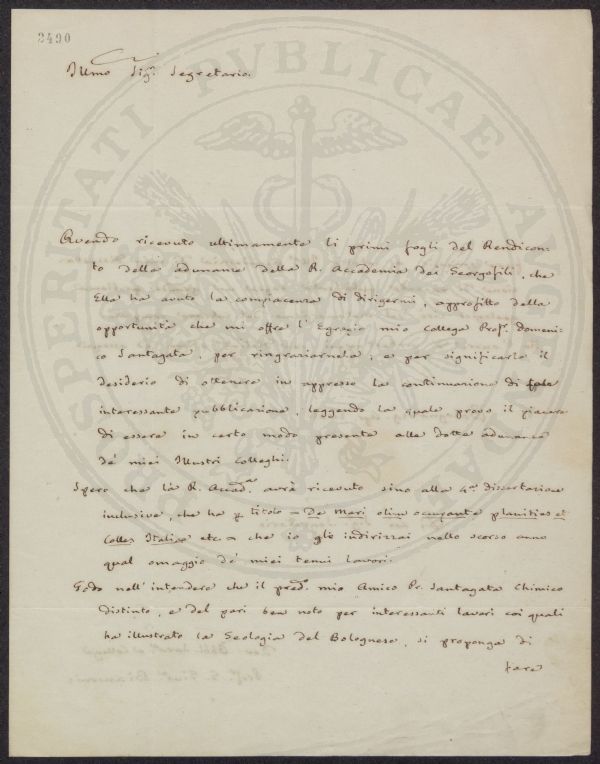 2490
Illmo Sigr. Segretario.
Avendo ricevuto ultimamente li primi fogli del Rendicon-
to della adunanze della R. Accademia dei Georgofili, che
Ella ha avuto la compiacenza di dirigermi, approfitto della
opportunità che mi offre l'Egregio mio collega Prof. Domeni-
co Santagata, per ringraziarnela; e per significarle il
desiderio di ottenere in appresso la continuazione di
interessante pubblicazione, leggendo la quale provo il piacere
di essere in certo modo presente alle dotte adunanze
de' miei Illustri Colleghi.
Spero che la R. Accad. avrà ricevuto sino alla 4a dissertazione
inclusive, che ha p titolo = De Mari olim occupante planities et
Colles Italiae etc = che io gli indirizzai nello scorso anno
qual omaggio de' miei tenui lavori.
Godo nell'intendere che il pred.o mio Amico Pr. Santagata Chimico
distinto, e del pari ben noto per interessanti lavori coi quali
ha illustrato la Geologia del Bolognese, si proponga di
fare
PROSPERITATI PVBLICAE AVGENDAE